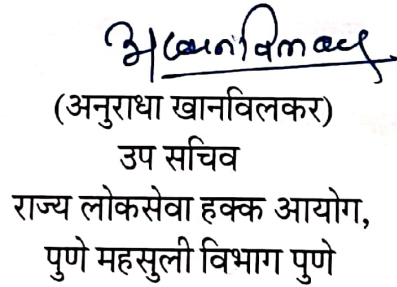 (अनुराधा खानविलकर)
उप सचिव
राज्य लोकसेवा हक्क आयोग,
पुणे महसुली विभाग पुणे